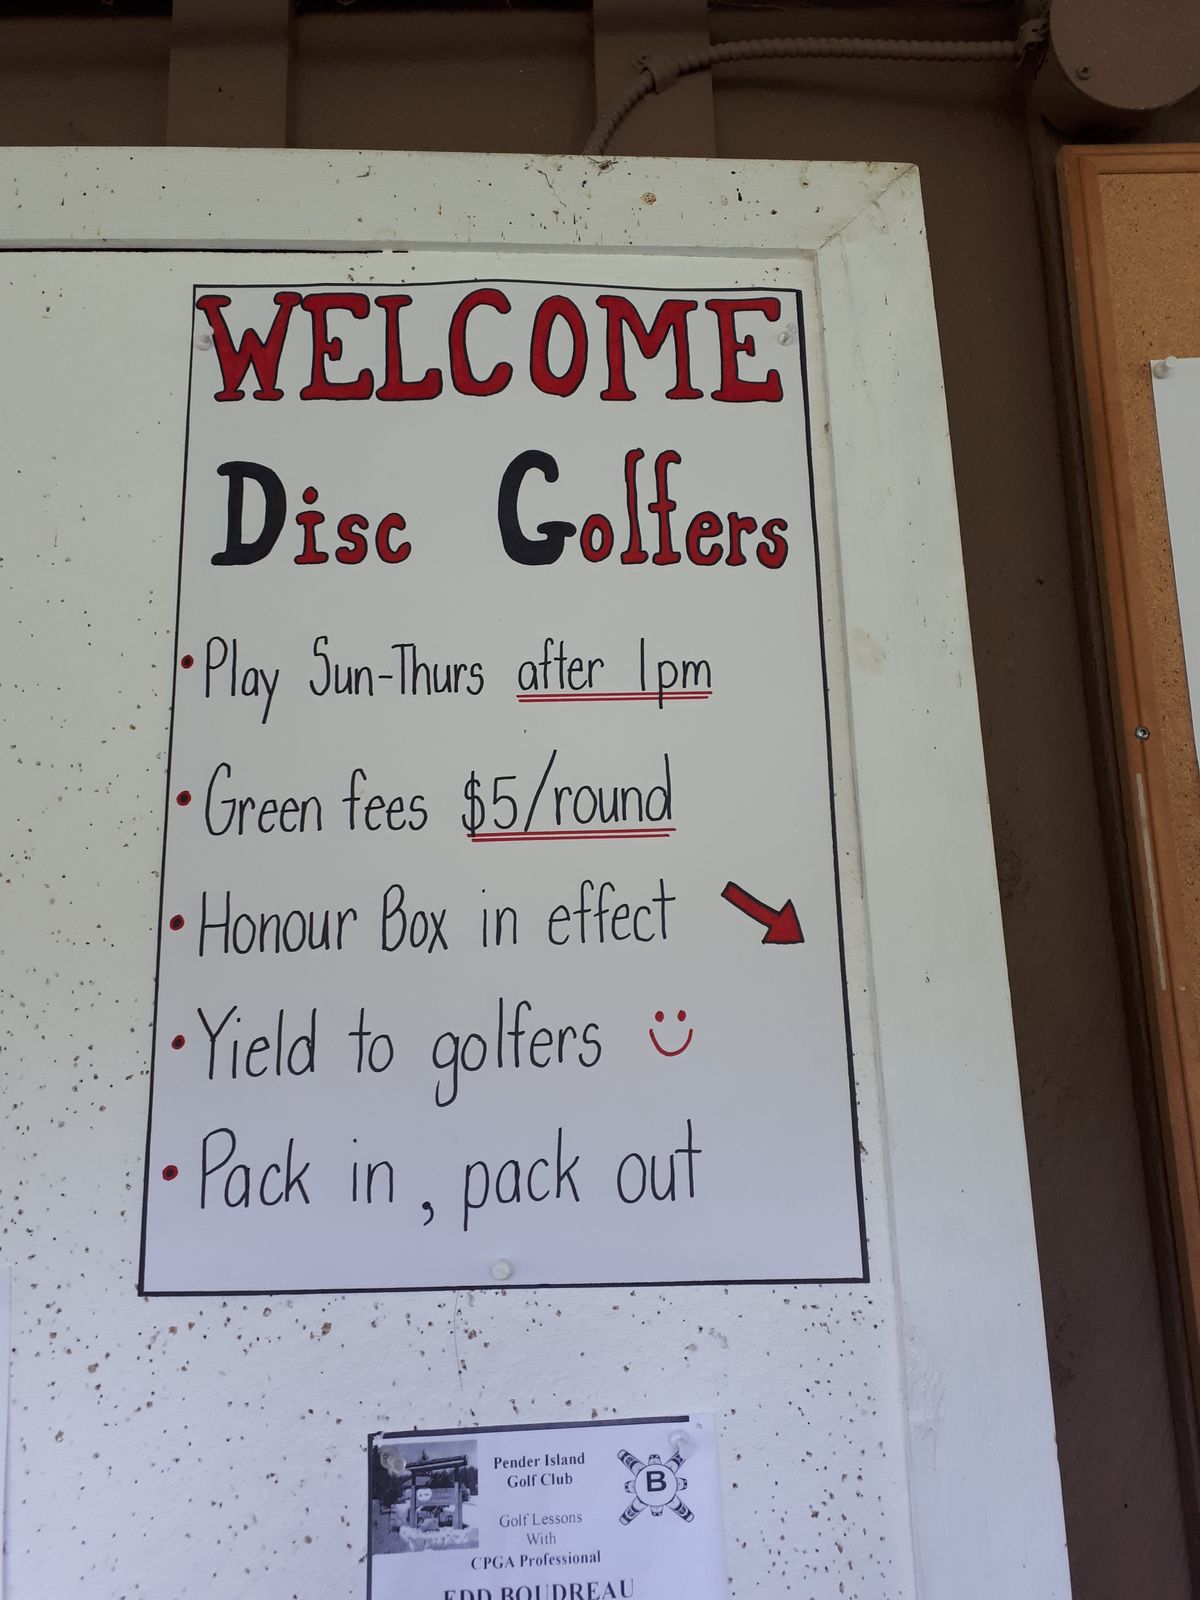 WELCOME
Disc Golfers
• Play Sun-Thurs after 1pm
• Green fees $5/round
• Honour Box in effect
• Yield to golfers
• Pack in, pack out
Pender Island
Golf Club
B
Golf Lessons
With
CPGA Professional
EDD BOUDREAU